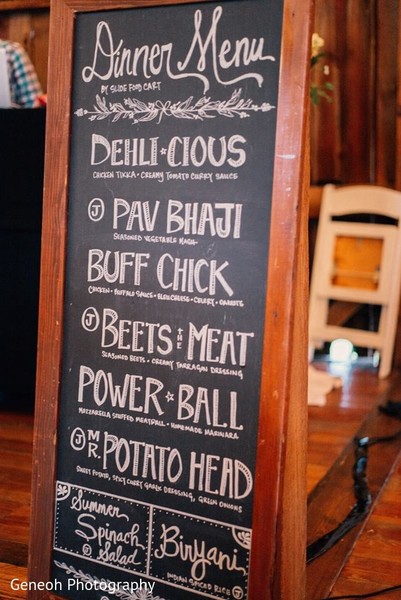 Dinner Menu
BY SLIDE FOOD CART
DEHLI·CIOUS
CHICKEN TIKKA · CREAMY TOMATO CURRY SAUCE
J PAV BHAJI
SEASONED VEGETABLE MASH
BUFF CHICK
CHICKEN · BUFFALO SAUCE · BLEU CHEESE · CELERY · CARROTS
J BEETS THE MEAT
SEASONED BEETS · CREAMY TARRAGON DRESSING
POWER·BALL
MOZZARELLA STUFFED MEATBALL · HOMEMADE MARINARA
J MR. POTATO HEAD
SWEET POTATO, SPICY CURRY GARLIC DRESSING, GREEN ONIONS
GF
Summer
Spinach
J Salad
GF
Biryani
INDIAN SPICED RICE J
Geneoh Photography